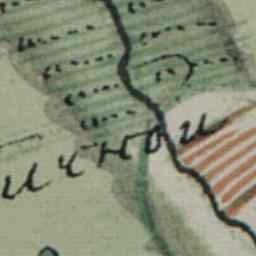 ичной